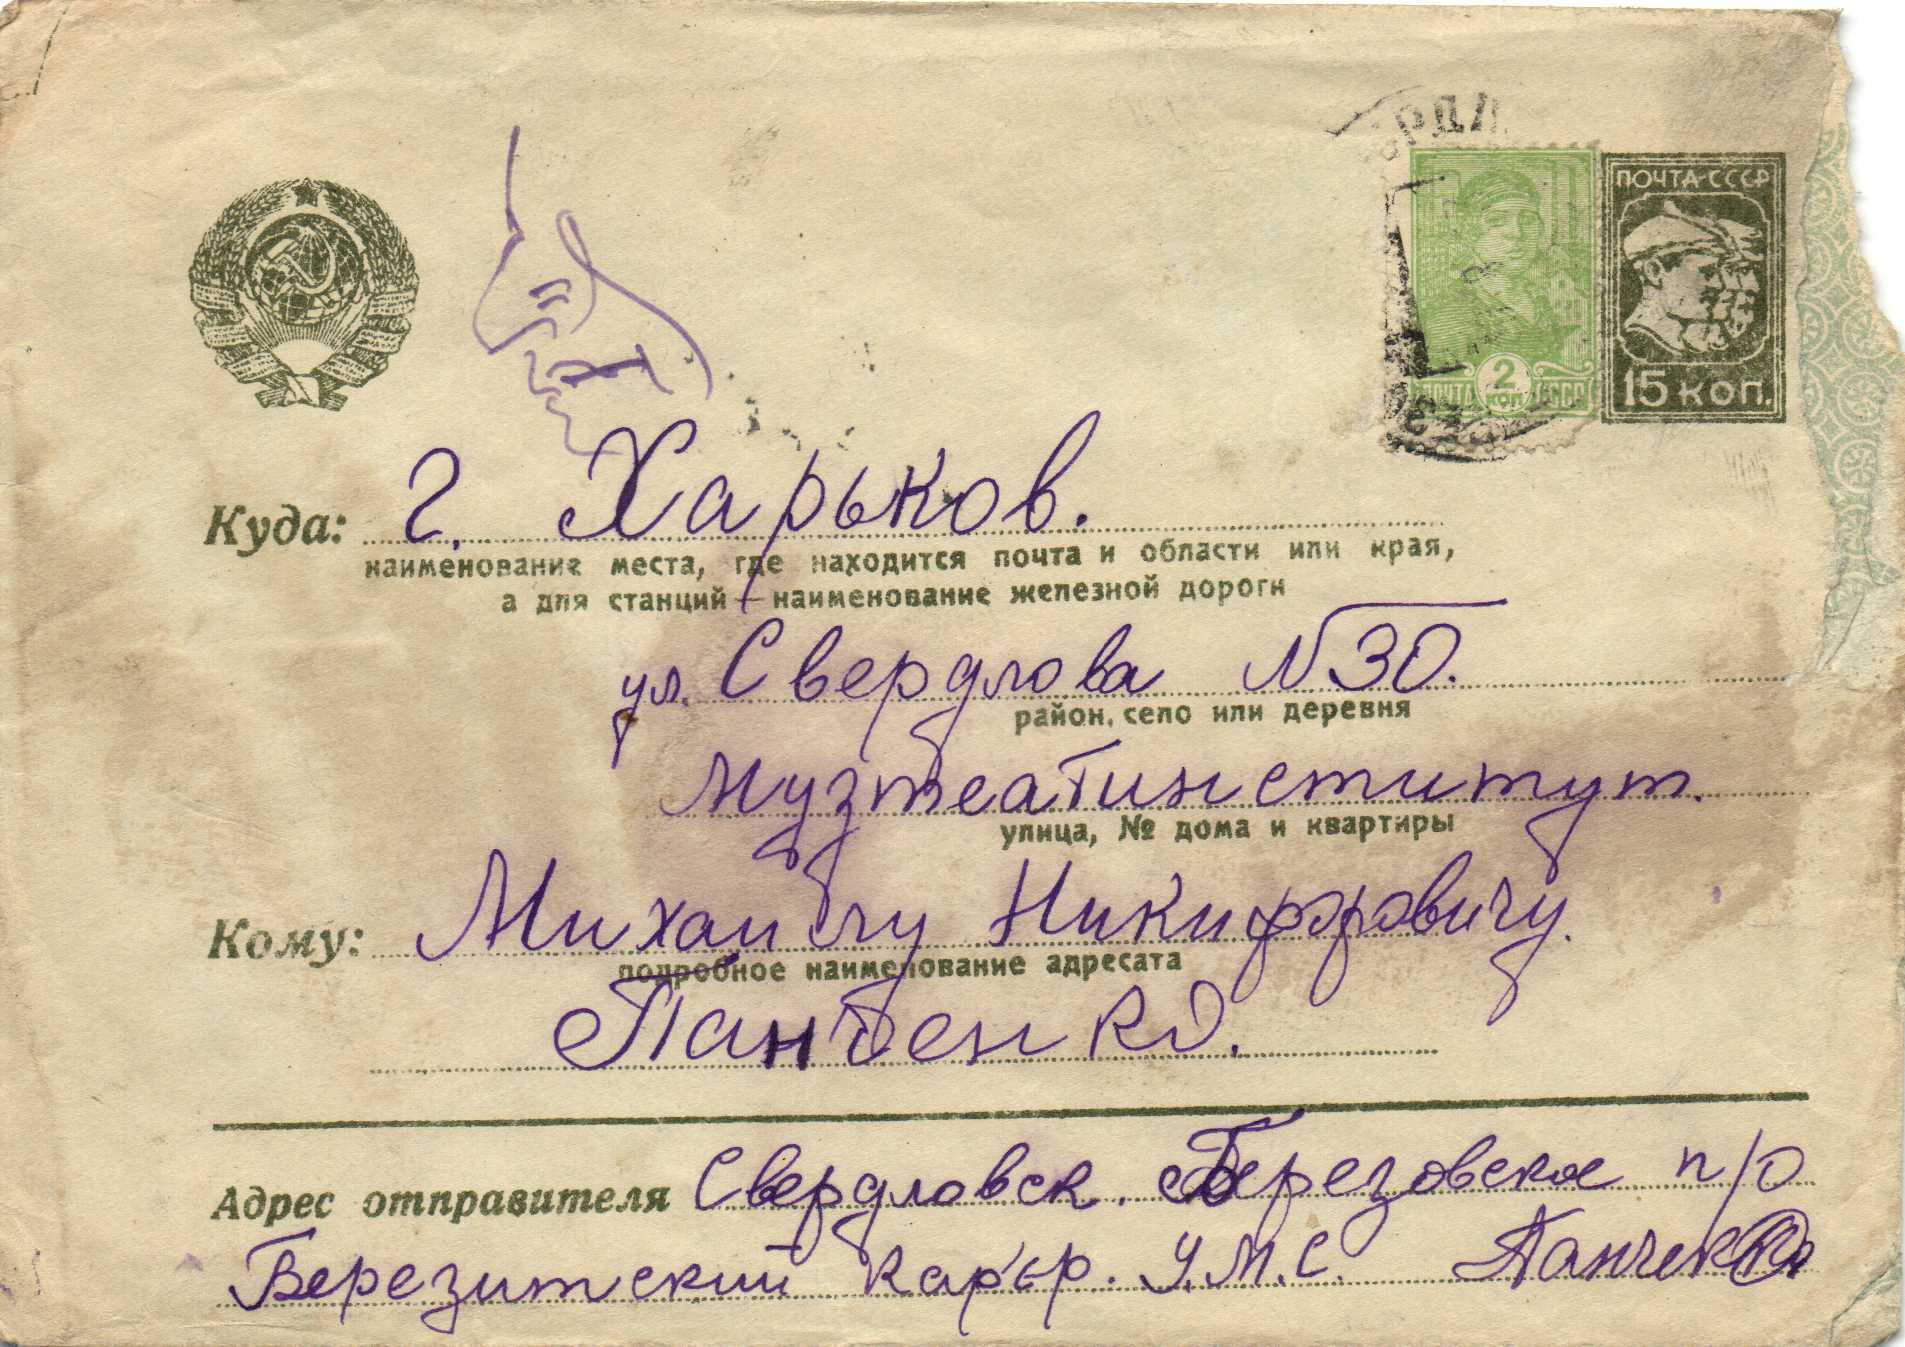 ПОЧТА-СССР
15 КОП.
2
КОП
ПОЧТА СССР
Куда: г. Харьков.
наименование места, где находится почта и области или края,
а для станций — наименование железной дороги
ул. Свердлова N 30.
район, село или деревня
Музтеатинститут.
улица, № дома и квартиры
Кому: Михаилу Никифоровичу.
подробное наименование адресата
Панченко.
Адрес отправителя Свердловск. Березовское п/о
Березитский карьер. У.М.С. Панченко